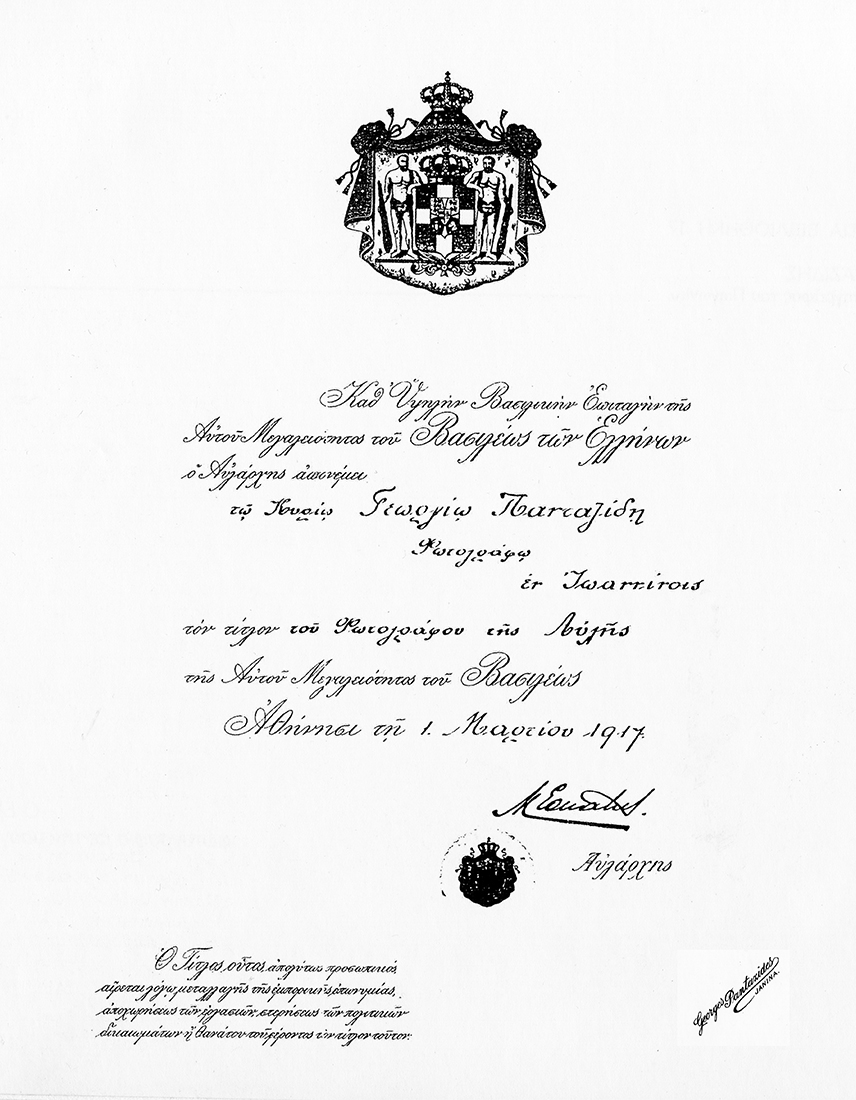 Καθ' Ὑψηλὴν Βασιλικὴν Ἐπιταγὴν τῆς
Αὐτοῦ Μεγαλειότητος τοῦ Βασιλέως τῶν Ἑλλήνων
ὁ Αὐλάρχης ἀπονέμει
τῷ Κυρίῳ Γεωργίῳ Πανταζίδῃ
Φωτογράφῳ
ἐν Ἰωαννίνοις
τὸν τίτλον τοῦ Φωτογράφου τῆς Αὐλῆς
τῆς Αὐτοῦ Μεγαλειότητος τοῦ Βασιλέως
Ἀθήνησι τῇ 1. Μαρτίου 1917.
Αὐλάρχης
Ὁ Τίτλος οὗτος, ἀπολύτως προσωπικός,
αἴρεται λόγῳ μεταλλαγῆς τῆς ἐμπορικῆς ἐπωνυμίας,
ἀποχωρήσεως τῶν ἐργασιῶν, στερήσεως τῶν πολιτικῶν
δικαιωμάτων ἢ θανάτου τοῦ φέροντος τὸν τίτλον τοῦτον.
Georges Pantazides
JANINA.